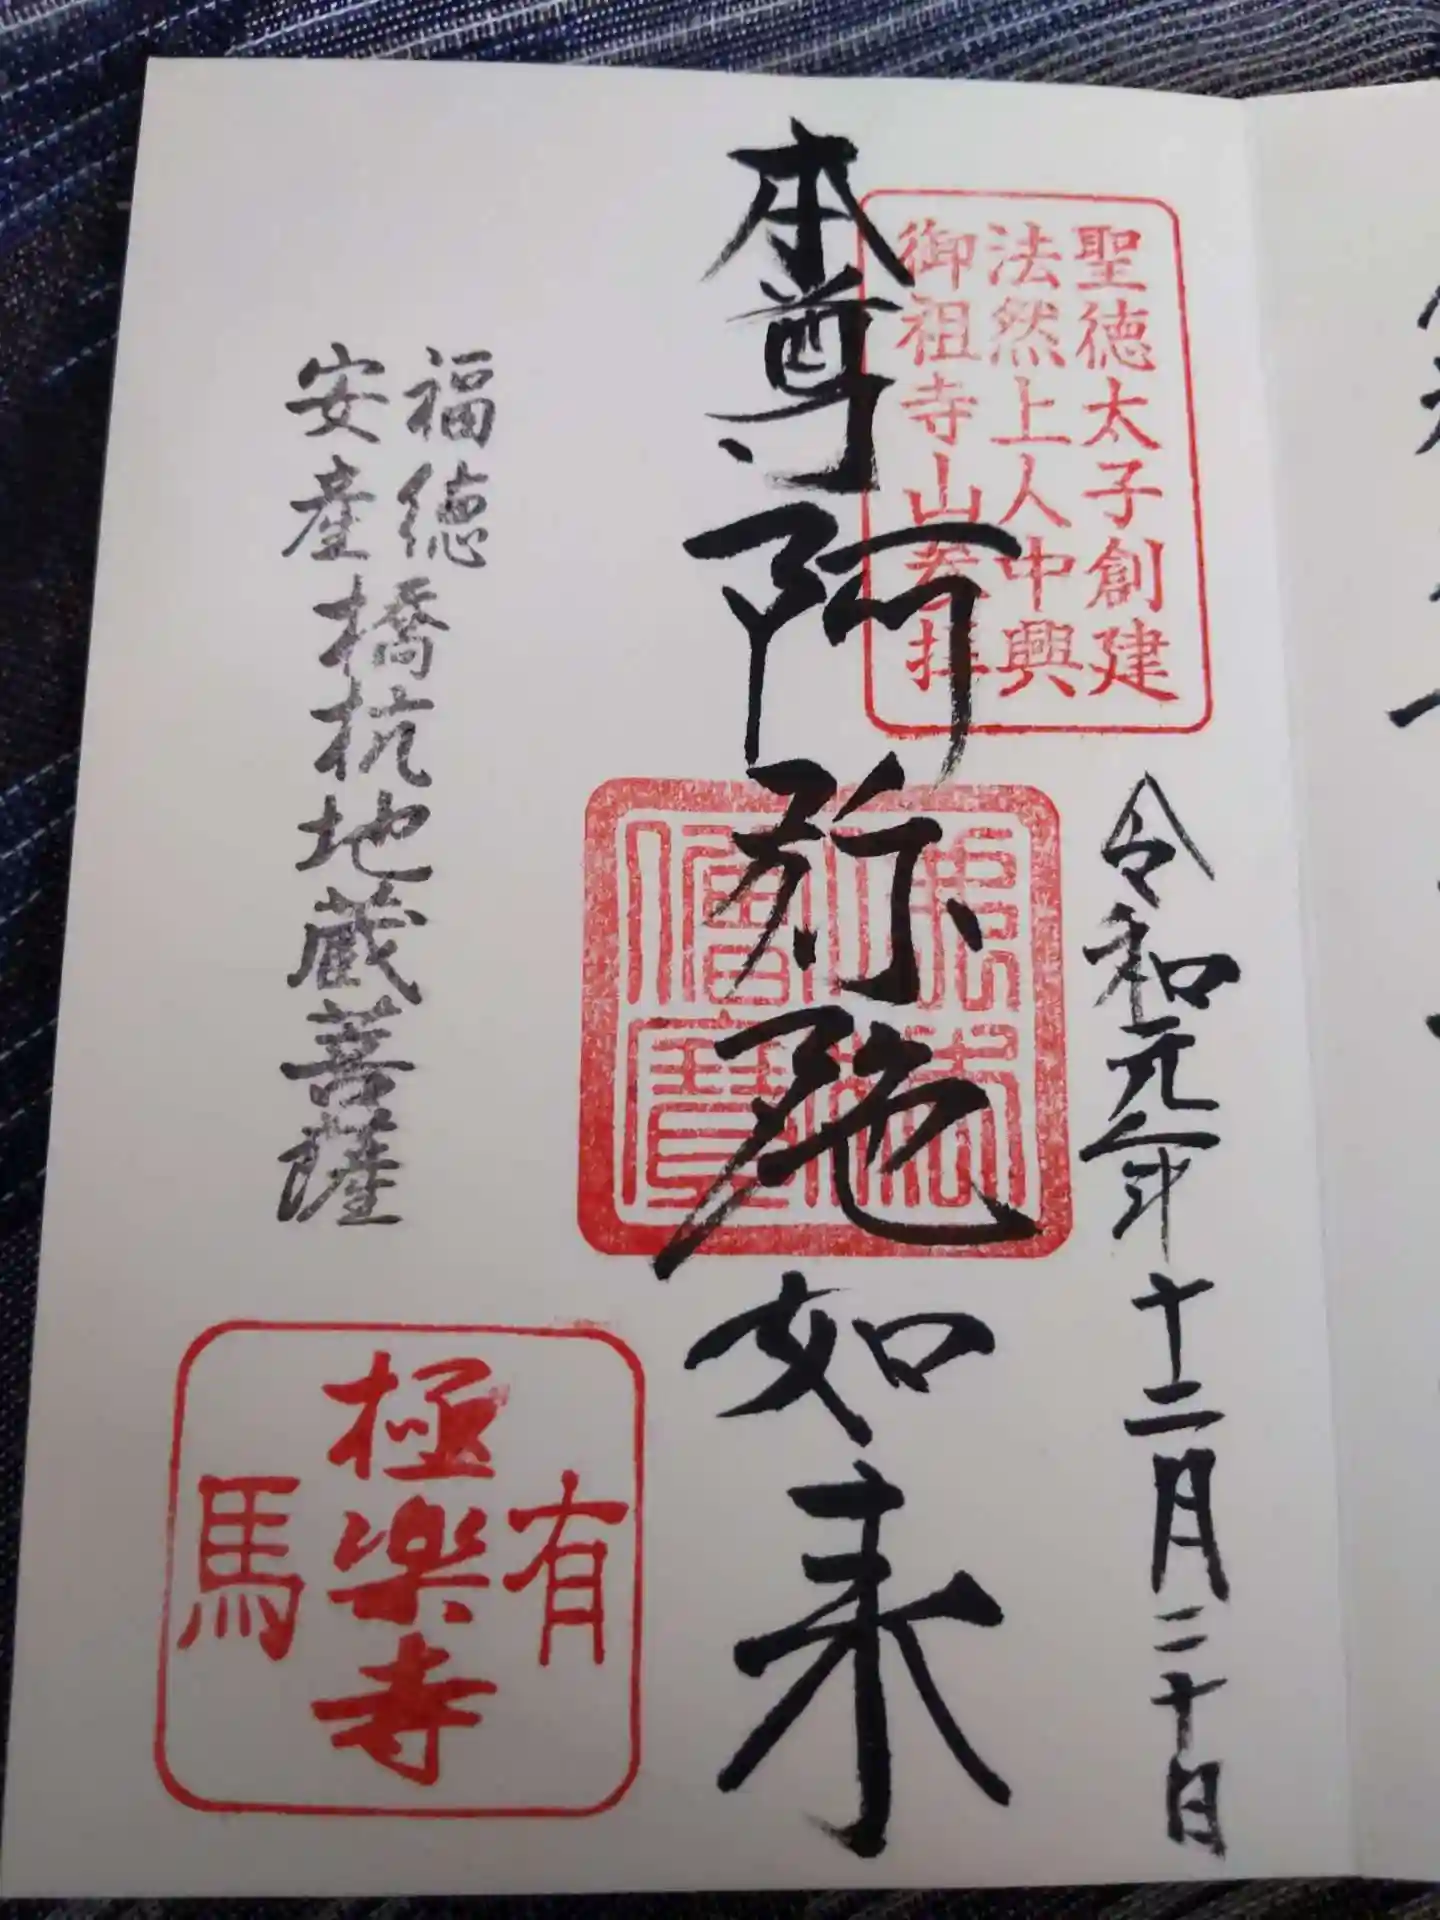 聖徳太子創建
法然上人中興
御祖寺山参拝
令和元年十二月二十日
本尊阿弥陀如来
佛法
僧寶
福徳
安産
橋杭地蔵菩薩
有馬
極楽寺